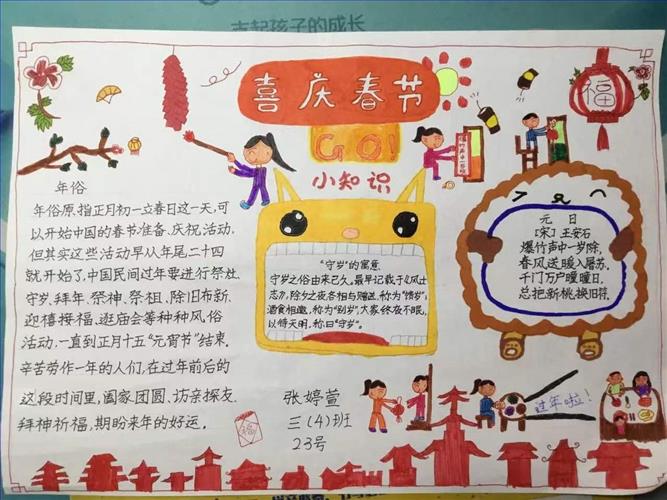 支起孩子的成长
喜庆春节
GO!
小知识
福
年俗
年俗原,指正月初一立春日这一天,可
以开始中国的春节准备、庆祝活动,
但其实这些活动早从年尾二十四
就开始了,中国民间过年要进行祭灶、
守岁、拜年、祭神、祭祖、除旧布新、
迎禧接福、逛庙会等种种风俗
活动,一直到正月十五“元宵节”结束。
辛苦劳作一年的人们,在过年前后的
这段时间里,阖家团圆、访亲探友、
拜神祈福,期盼来年的好运。
“守岁”的寓意
守岁之俗由来已久。最早记载于《风土
志》,除夕之夜各相与赠送,称为“馈岁”,
酒食相邀,称为“别岁”,大家终夜不眠,
以待天明,称曰“守岁”。
元日
[宋]王安石
爆竹声中一岁除,
春风送暖入屠苏。
千门万户曈曈日,
总把新桃换旧符。
张婷萱
三(4)班
23号
过年啦!
福